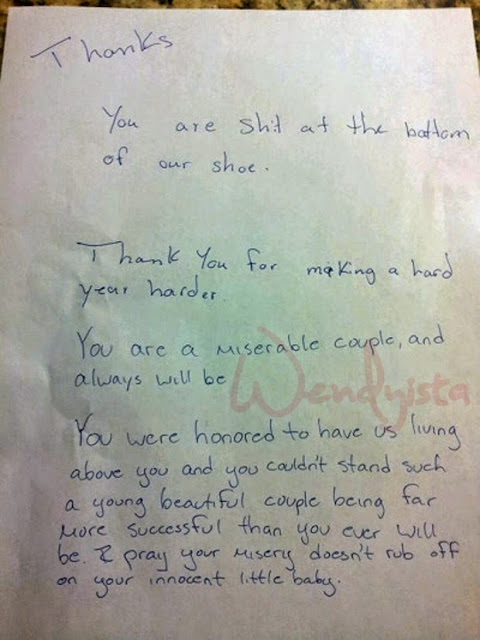 Thanks
You are shit at the bottom
of our shoe.
Thank You for making a hard
year harder.
You are a miserable couple, and
always will be
Wendyista
You were honored to have us living
above you and you couldn't stand such
a young beautiful couple being far
more successful than you ever will
be. I pray your misery doesn't rub off
on your innocent little baby.